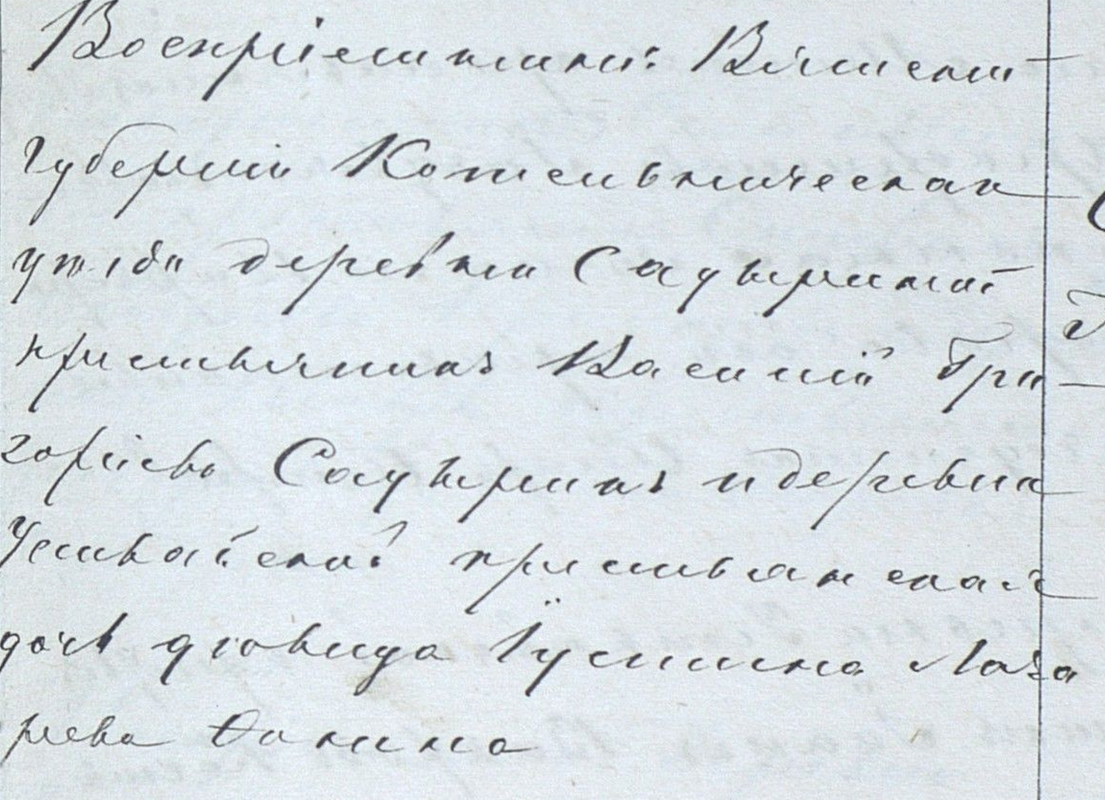 Воспріемники: Вятской
губерніи Котельническаго
уѣзда деревни Садыринской
крестьянинъ Василій Гри
горіевъ Садыринъ и деревни
крестьянская
дочь дѣвица Іустина Лаза
рева Ѳокина